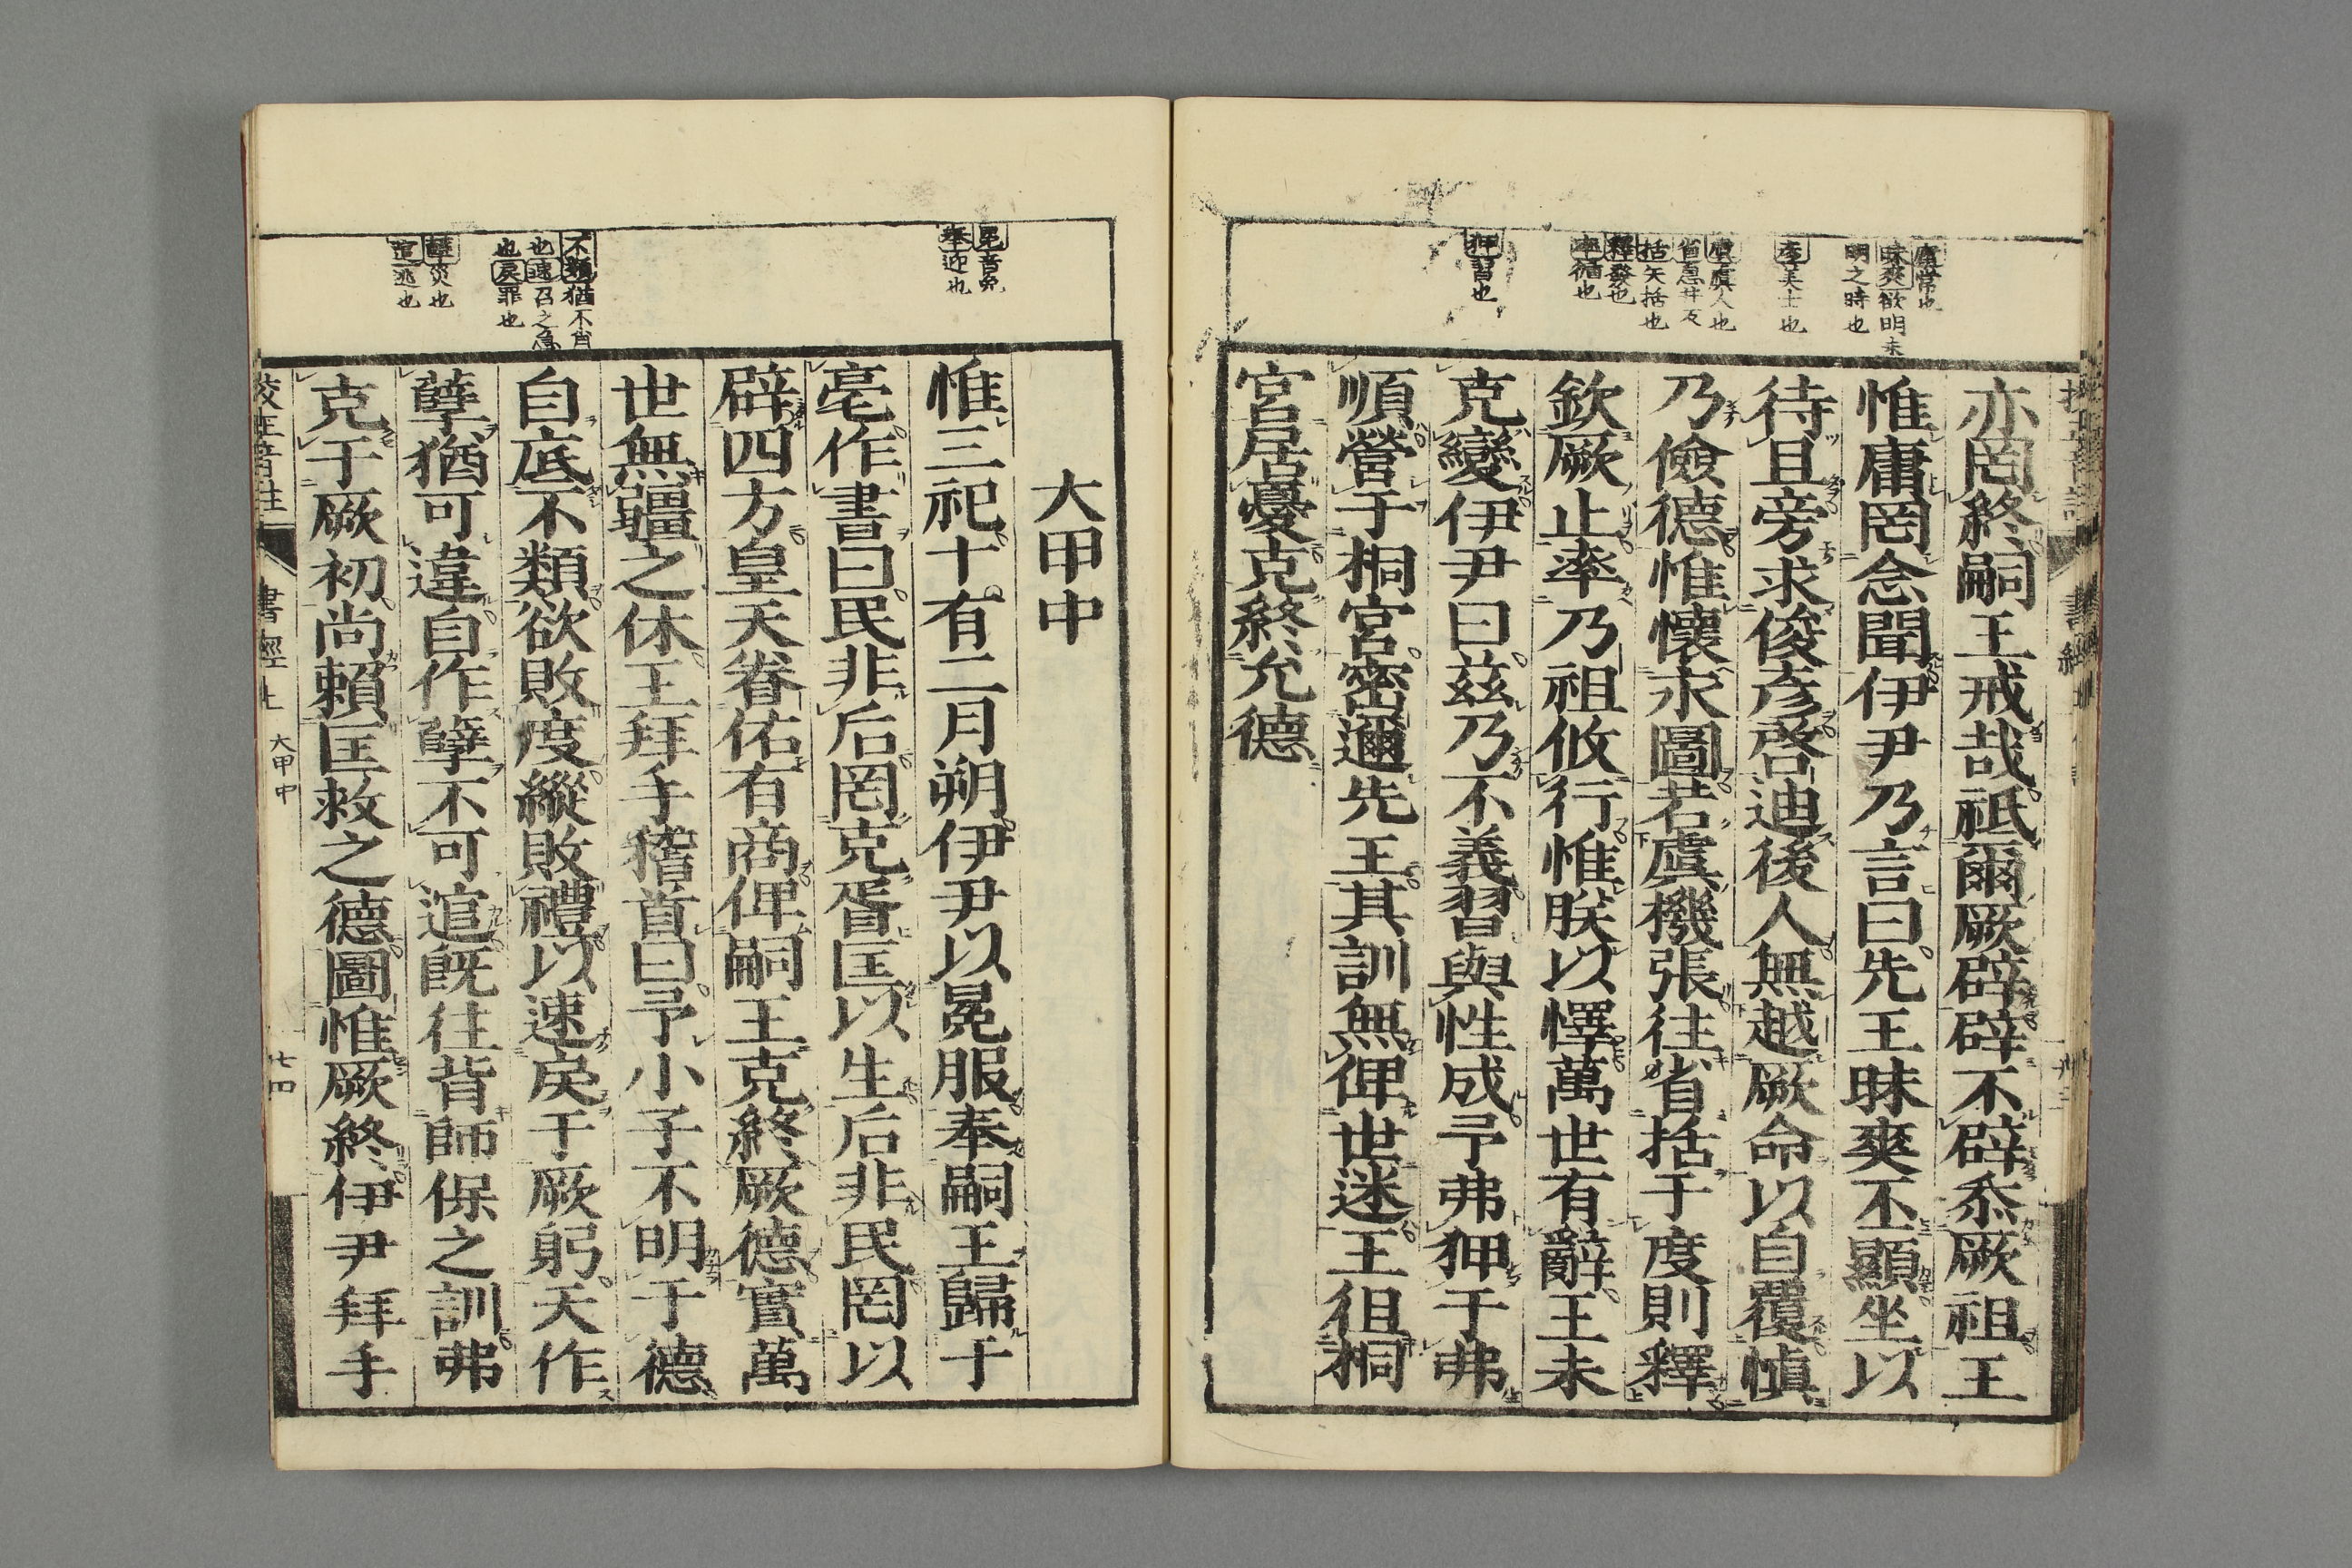 庸常也
昧爽欲明未
明之時也
彥美士也
虞虞人也
省息井反
括矢括也
釋發也
率循也
狎習也
亦罔終嗣王戒哉祗爾厥辟辟不辟忝厥祖王
惟庸罔念聞伊尹乃言曰先王昧爽丕顯坐以
待旦旁求俊彥啓迪後人無越厥命以自覆愼
乃儉德惟懷永圖若虞機張往省括于度則釋
欽厥止率乃祖攸行惟朕以懌萬世有辭王未
克變伊尹曰茲乃不義習與性成予弗狎于弗
順營于桐宮密邇先王其訓無俾世迷王徂桐
宮居憂克終允德
冕音免
奉迎也
不類猶不肖
也速召之急
也戾罪也
孽災也
逭逃也
大甲中
惟三祀十有二月朔伊尹以冕服奉嗣王歸于
亳作書曰民非后罔克胥匡以生后非民罔以
辟四方皇天眷佑有商俾嗣王克終厥德實萬
世無疆之休王拜手稽首曰予小子不明于德
自底不類欲敗度縱敗禮以速戾于厥躬天作
孽猶可違自作孽不可逭旣往背師保之訓弗
克于厥初尚賴匡救之德圖惟厥終伊尹拜手
校正音註 書經上 大甲中 廿四